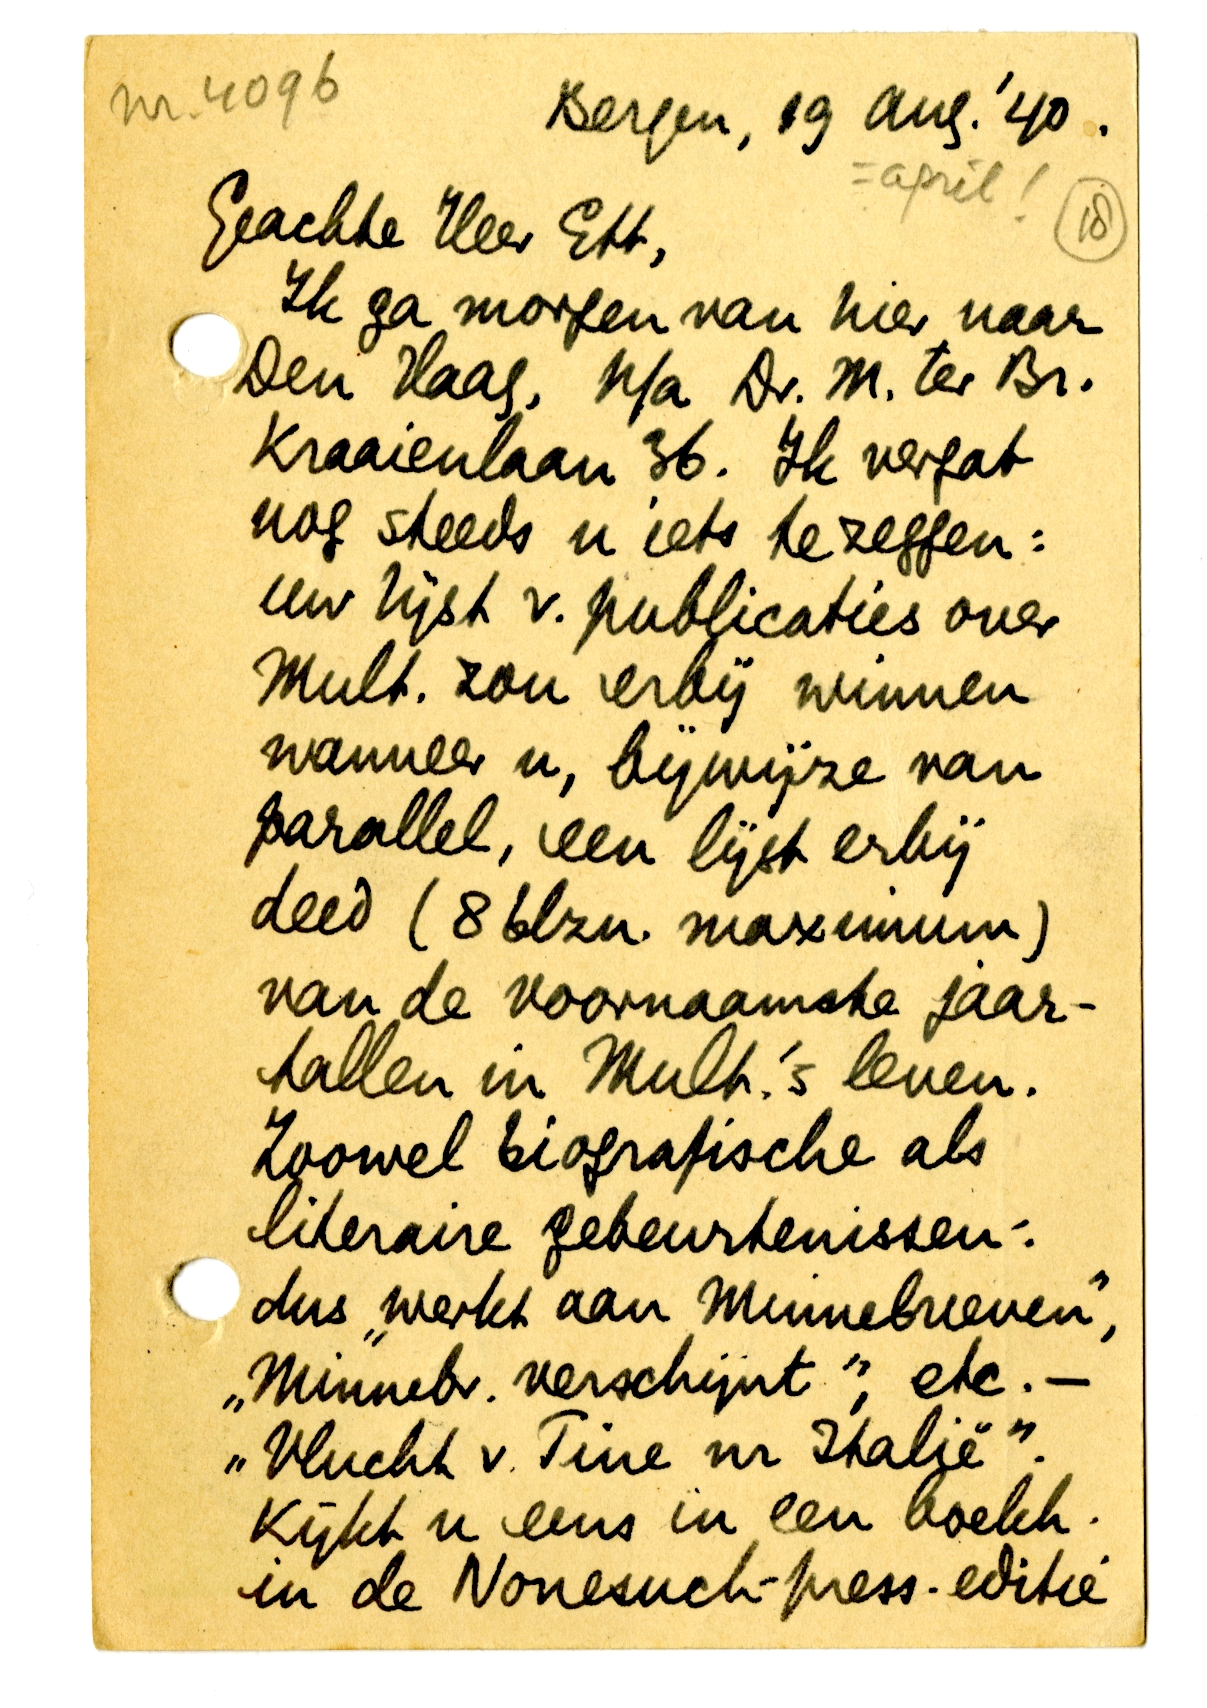 nr. 4096
Bergen, 19 Aug. '40.
= april!
18
Geachte Heer Ett,
Ik ga morgen van hier naar
Den Haag, p/a Dr. M. ter Br.
Kraaienlaan 36. Ik vergat
nog steeds u iets te zeggen:
uw lijst v. publicaties over
Mult. zou erbij winnen
wanneer u, bijwijze van
parallel, een lijst erbij
deed (8 blzn. maximum)
van de voornaamste jaar-
tallen in Mult.'s leven.
Zoowel biografische als
literaire gebeurtenissen:
dus „werkt aan Minnebrieven",
„Minnebr. verschijnt", etc. —
„Vlucht v. Tine nr Italië".
Kijkt u eens in een boekh.
in de Nonesuch-press-editie